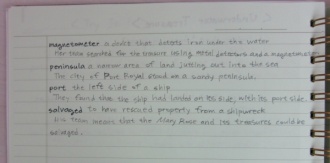 magnetometer a device that detects iron under the water
Her team searched for the treasure using metal detectors and a magnetometer
peninsula a narrow area of land jutting out into the sea
The city of Port Royal stood on a sandy peninsula.
port the left side of a ship
They found that the ship had landed on its side, with its port side.
salvaged to have rescued property from a shipwreck
his team means that the Mary Rose and its treasures could be
salvaged.